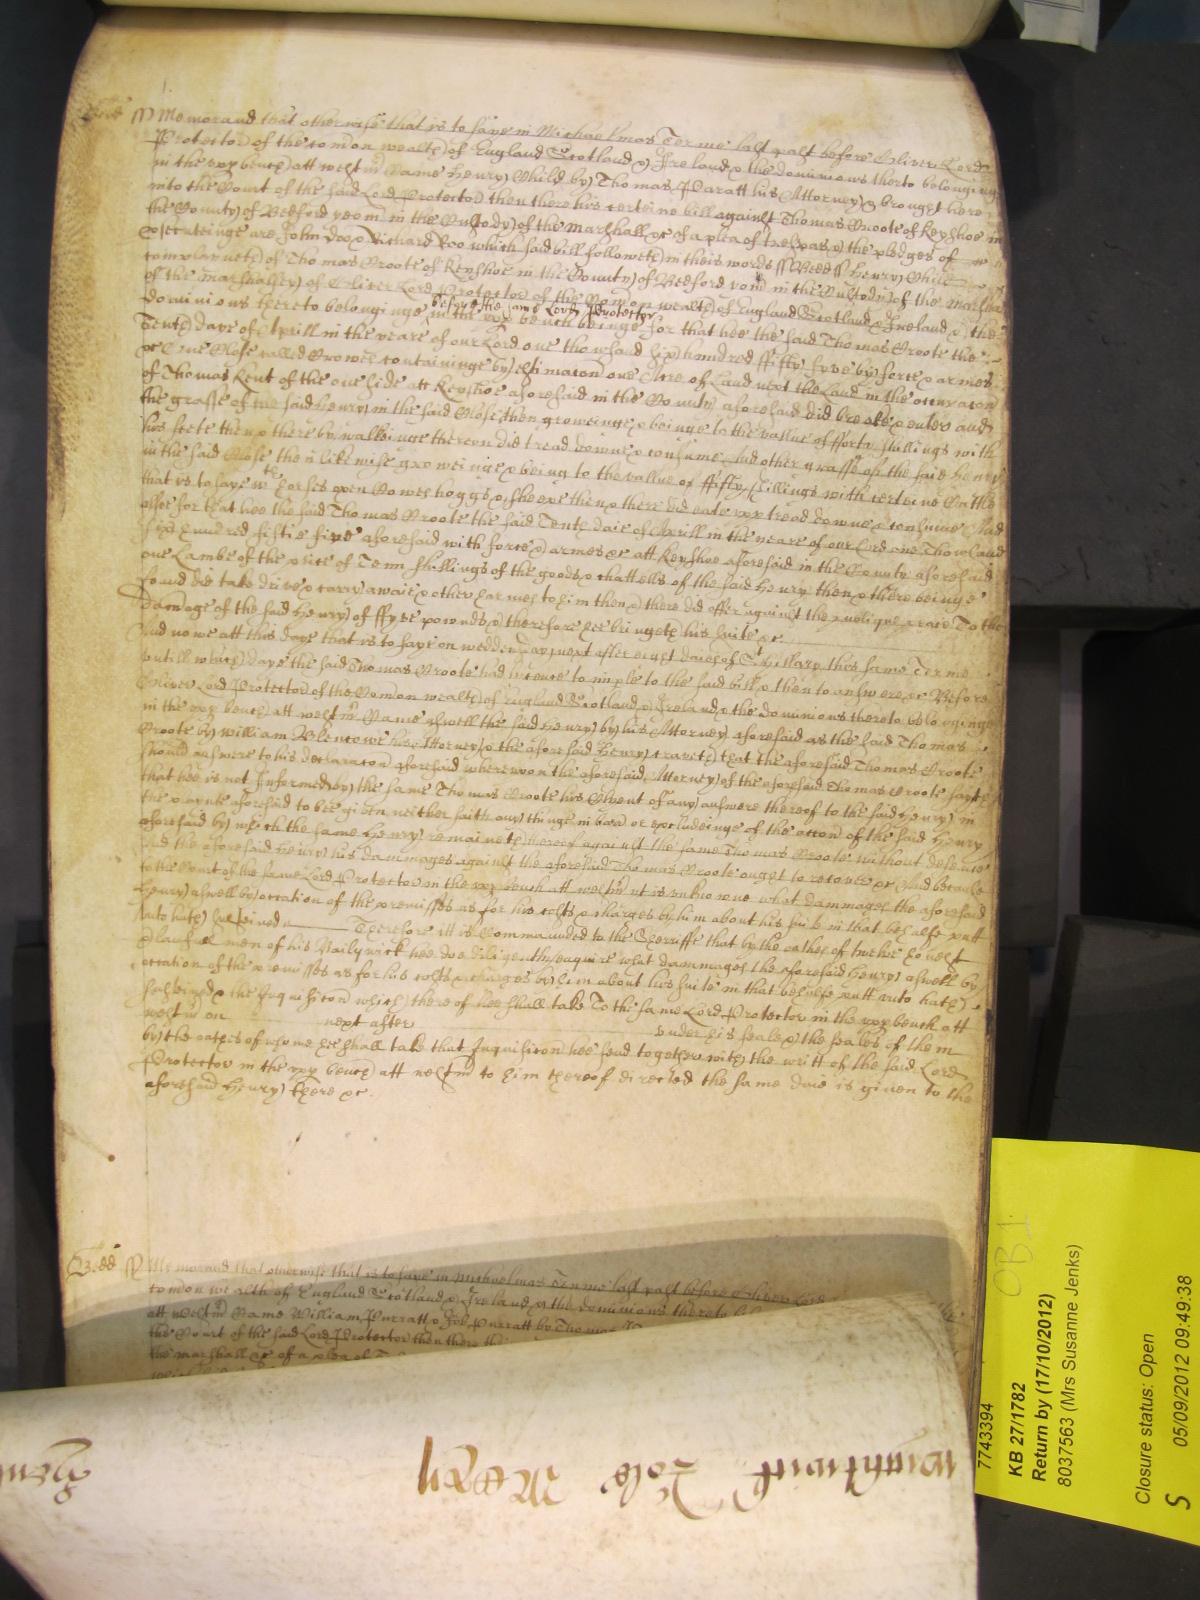 Bedd Memorand that otherwise that is to saye in Michaelmas Terme last past before Oliver Lord
Protector of the comon wealth of England Scotland & Ireland & the dominions thereto belonging
in the upp bench att westm Came Henry Child by Thomas Paratt his Attorney & brought here
into the Court of the said Lord Protector then there his certeine bill against Thomas Groote of Keyshoe in
the County of Bedford yeom in the Custody of the marshall &c of a plea of trespas & the pledges of
psecuteinge are John Doo & Richard Roo which said bill followeth in theis words ss Bedd ss Henry Child
complayneth of Thomas Groote of Keyshoe in the County of Bedford yeom in the Custody of the marshall
of the marshallsey of Oliver Lord Protector of the Comon wealth of England Scotland & Ireland & the
dominions thereto belonginge before the same Lord Protector in the upp bench beinge for that hee the said Thomas Groote the
Tenth daye of Aprill in the yeare of our Lord one thowsand six hundred fiffty fyve by force & armes
&c One Close called Crowch containinge by estimacon one Acre of Land next the Land in the occupacon
of Thomas Kent of the one side att Keyshoe aforesaid in the County aforesaid did breake & enter and
the grasse of the said Henry in the said Close then groweinge & beinge to the vallue of fforty shillings with
his feete then & there by walkinge thereon did tread downe & consume And other grasse of the said Henry
in the said Close then likewise groweinge & being to the vallue of fiffty shillings with certeine Cattle
that is to saye wth horses oxen Cowes hoggs & sheepe then & there did eate upp tread downe & consume And
alsoe for that hee the said Thomas Groote the said Tenth daie of Aprill in the yeare of our Lord one Thowsand
six hundred fiftie five aforesaid with force & armes &c att Keyshoe aforesaid in the County aforesaid
one Lambe of the price of Tenn shillings of the goods & chattells of the said Henry then & there beinge
found did take drive & carry awaie & other harmes to him then & there did offer against the publique peace To the
damage of the said Henry of ffyve pownds & therefore hee bringeth his suite &c
And nowe att this daye that is to saye on wednesday next after eight daies of St Hillary this same Terme
untill which daye the said Thomas Groote had licence to imple to the said bill & then to answere &c Before
Oliver Lord Protector of the Comon wealth of England Scotland & Ireland & the dominions thereto belonginge
in the upp bench att westmr Came aswell the said Henry by his Attorney aforesaid as the said Thomas
Groote by William Blencowe his Attorney & the aforesaid Henry craveth that the aforesaid Thomas Groote
should answere to his declaracon aforesaid whereupon the aforesaid Attorney of the aforesaid Thomas Groote sayth
that hee is not Informed by the same Thomas Groote his Clyent of any answere thereof to the said Henry in
the playnte aforesaid to bee given neither saith any thinge in barr or excludeinge of the accon of the said Henry
aforesaid by which the same Henry remaineth thereof against the same Thomas Groote without defence
And the aforesaid Henry his dammages against the aforesaid Thomas Groote ought to recover &c And because
to the Court of the same Lord Protector in the upp bench att westm it is unknowne what dammages the aforesaid
Henry aswell by occation of the premisses as for his costs & charges by him about his suite in that behalfe putt
unto hath susteined Therefore itt is Commaunded to the Sherriffe that by the oathes of twelve honest
& lawfull men of his Bailywick hee doe diligently enquire what dammages the aforesaid Henry aswell by
occation of the premisses as for his costs & charges by him about his suite in that behalfe putt unto hath
susteined & the Inquisicon which thereof hee shall take To the same Lord Protector in the upp bench att
westm on next after under his seale & the seales of them
by the oathes of whome hee shall take that Inquisicon hee send together with the writt of the said Lord
Protector in the upp bench att westm to him thereof directed the same daie is given to the
aforesaid Henry there &c.
Bedd Memorand that otherwise that is to saye in Michaelmas Terme last past before Oliver Lord
comon wealth of England Scotland & Ireland & the dominions thereto
att westm Came William Purratt & Job Purratt by Thomas
the Court of the said Lord Protector then there
the marshall &c of a plea of
7743394
KB 27/1782
Return by (17/10/2012)
8037563 (Mrs Susanne Jenks)
Closure status: Open
S 05/09/2012 09:49:38
OB1